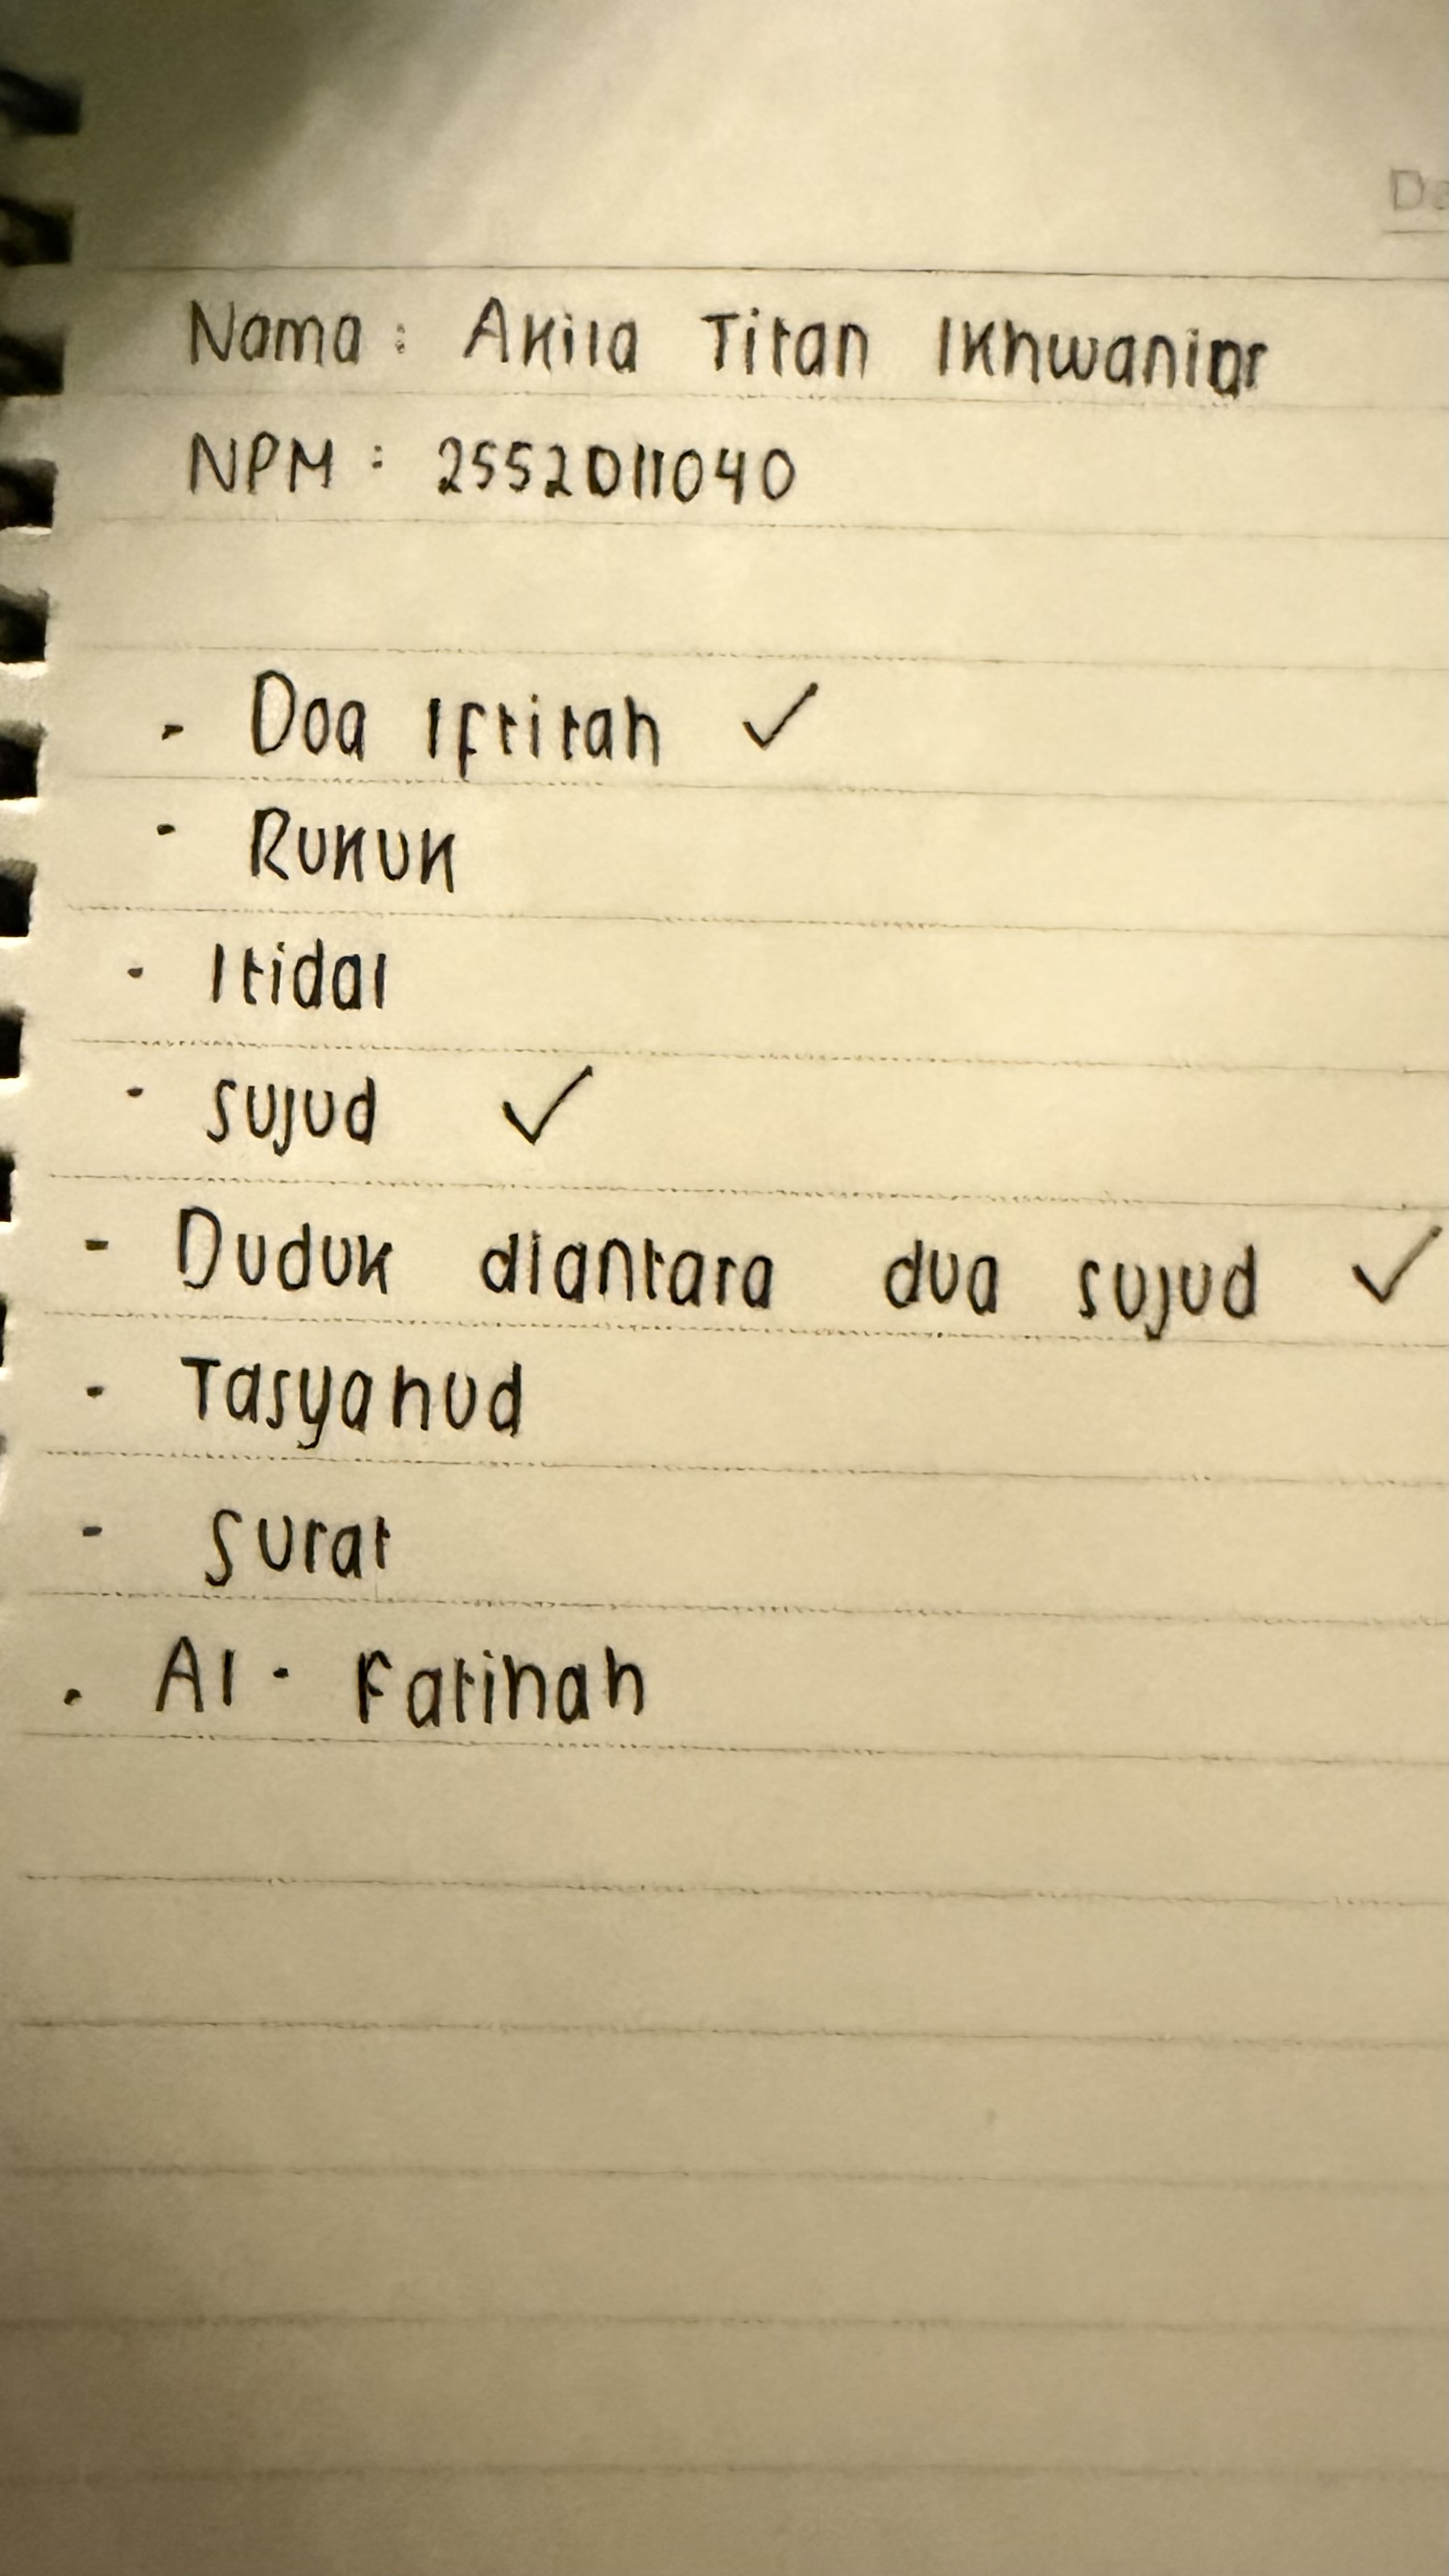 Nama : Akila Titan Ikhwanior
NPM : 2552011040
- Doa Iftitah ✓
- Rukuk
- Itidal
- sujud ✓
- Duduk diantara dua sujud ✓
- Tasyahud
- surat
. Al - Fatihah